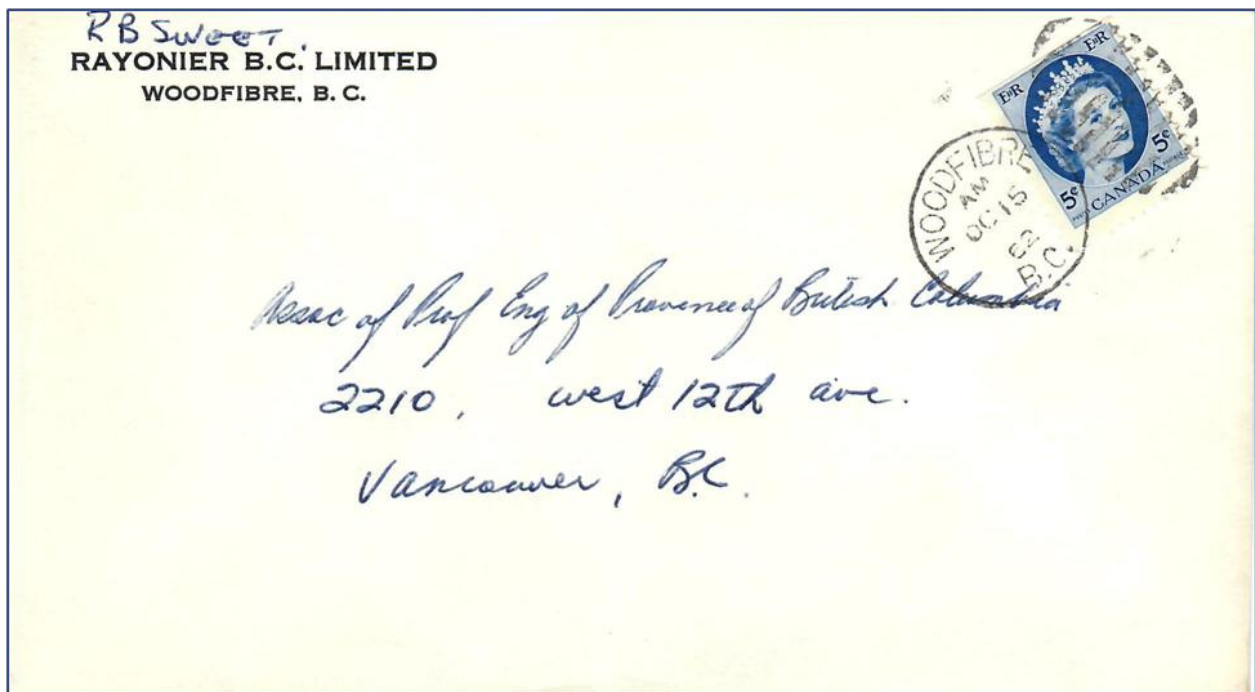 R B Sweet.
RAYONIER B.C. LIMITED
WOODFIBRE, B. C.
E R
E R
5¢
5¢
CANADA
WOODFIBRE
AM
OC 15
62
B.C.
Assoc of Prof Eng of Province of British Columbia
2210, west 12th ave.
Vancouver, B.C.